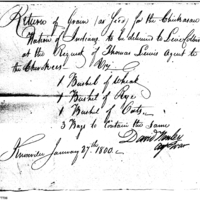 Return of Grain (as seed) for the Chickasaw
Nation of Indians to be delivered to
at the Request of Thomas Lewis Agent to
the Cherokees Viz
1 Bushel of Wheat
1 Bushel of Rye
1 Bushel of Oats
3 Bags to Contain the same
Knoxville January 27th 1800.
David Henley